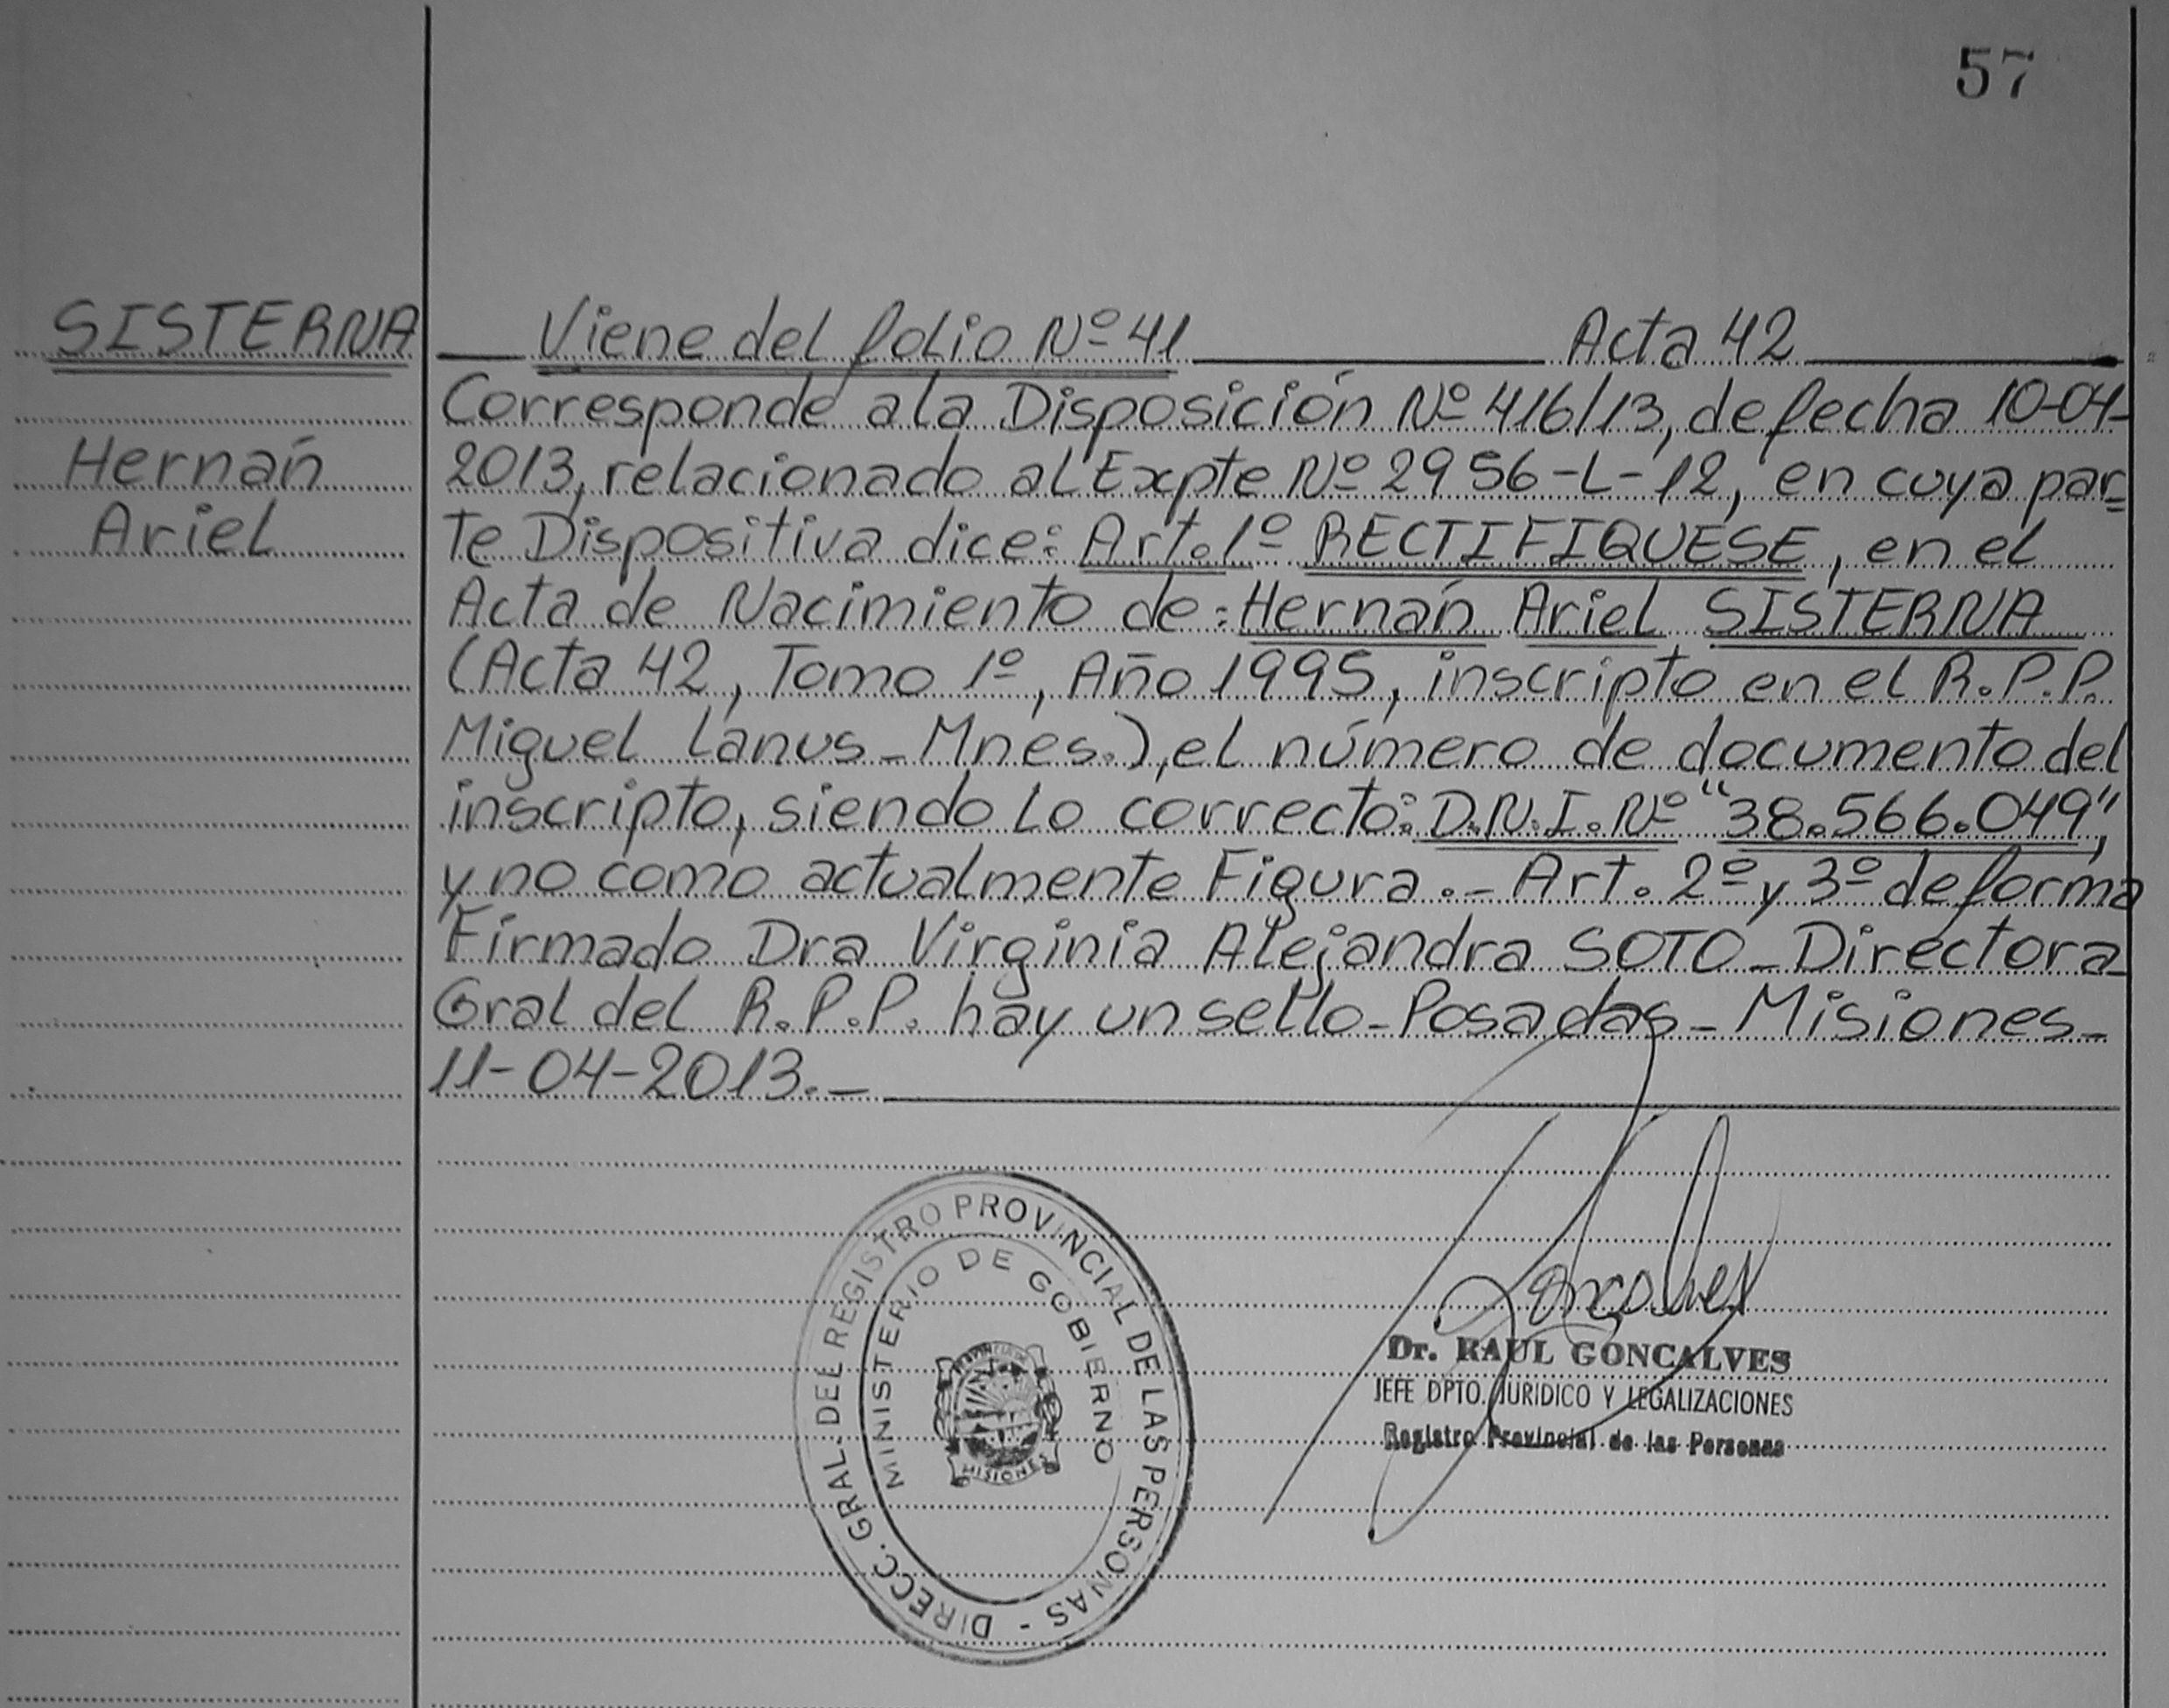 57
SISTERNA
Hernán
Ariel
Viene del folio Nº 41 Acta 42
Corresponde a la Disposición Nº 416/13, de fecha 10-04-
2013, relacionado al Expte Nº 2956-L-12, en cuya par=
te Dispositiva dice: Art. 1º RECTIFIQUESE, en el
Acta de Nacimiento de: Hernán Ariel SISTERNA
(Acta 42, Tomo 1º, Año 1995, inscripto en el R.P.P.
Miguel Lanus_Mnes.), el número de documento del
inscripto, siendo lo correcto: D.N.I. Nº "38.566.049",
y no como actualmente Figura._ Art. 2º y 3º de forma
Firmado Dra Virginia Alejandra SOTO_Directora
Gral del R.P.P. hay un sello_Posadas_Misiones_
11-04-2013._
DIRECC. GRAL. DEL REGISTRO PROVINCIAL DE LAS PERSONAS -
MINISTERIO DE GOBIERNO
PROVINCIA DE
MISIONES
Goncalves
Dr. RAUL GONCALVES
JEFE DPTO. JURIDICO Y LEGALIZACIONES
Registro Provincial de las Personas